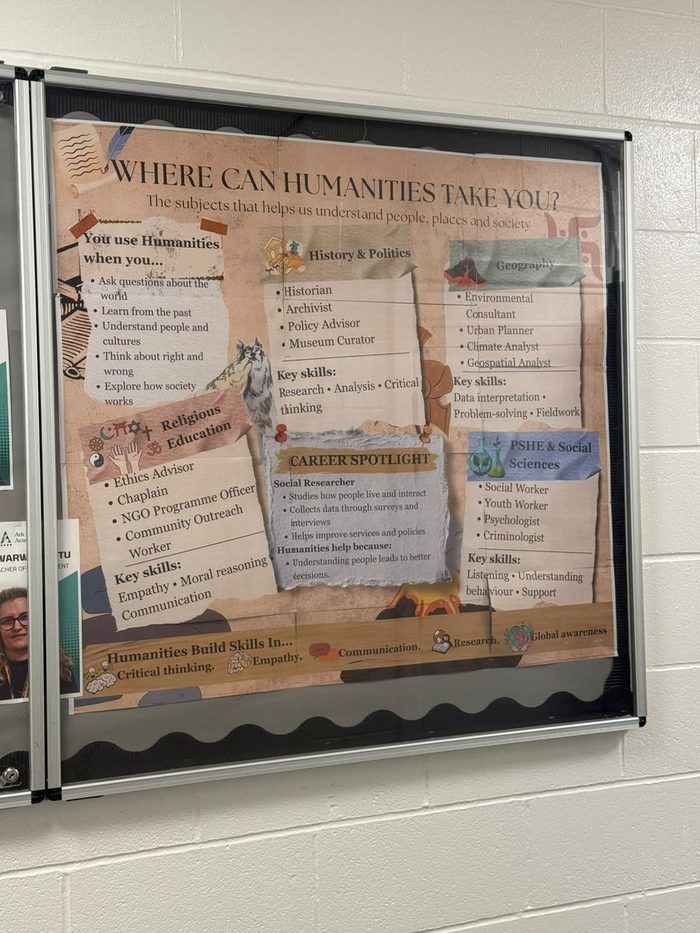 WHERE CAN HUMANITIES TAKE YOU?
The subjects that helps us understand people, places and society
You use Humanities
when you...
• Ask questions about the
world
• Learn from the past
• Understand people and
cultures
• Think about right and
wrong
• Explore how society
works
History & Politics
• Historian
• Archivist
• Policy Advisor
• Museum Curator
Key skills:
Research • Analysis • Critical
thinking
Geography
• Environmental
Consultant
• Urban Planner
• Climate Analyst
• Geospatial Analyst
Key skills:
Data interpretation •
Problem-solving • Fieldwork
Religious
Education
• Ethics Advisor
• Chaplain
• NGO Programme Officer
• Community Outreach
Worker
Key skills:
Empathy • Moral reasoning
Communication
CAREER SPOTLIGHT
Social Researcher
• Studies how people live and interact
• Collects data through surveys and
interviews
• Helps improve services and policies
Humanities help because:
• Understanding people leads to better
decisions.
PSHE & Social
Sciences
• Social Worker
• Youth Worker
• Psychologist
• Criminologist
Key skills:
Listening • Understanding
behaviour • Support
Humanities Build Skills In...
Critical thinking.
Empathy.
Communication.
Research.
Global awareness
A Ark